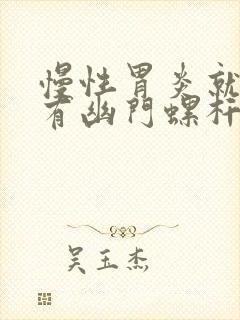 慢性胃炎就
有幽門螺杆
吴玉杰